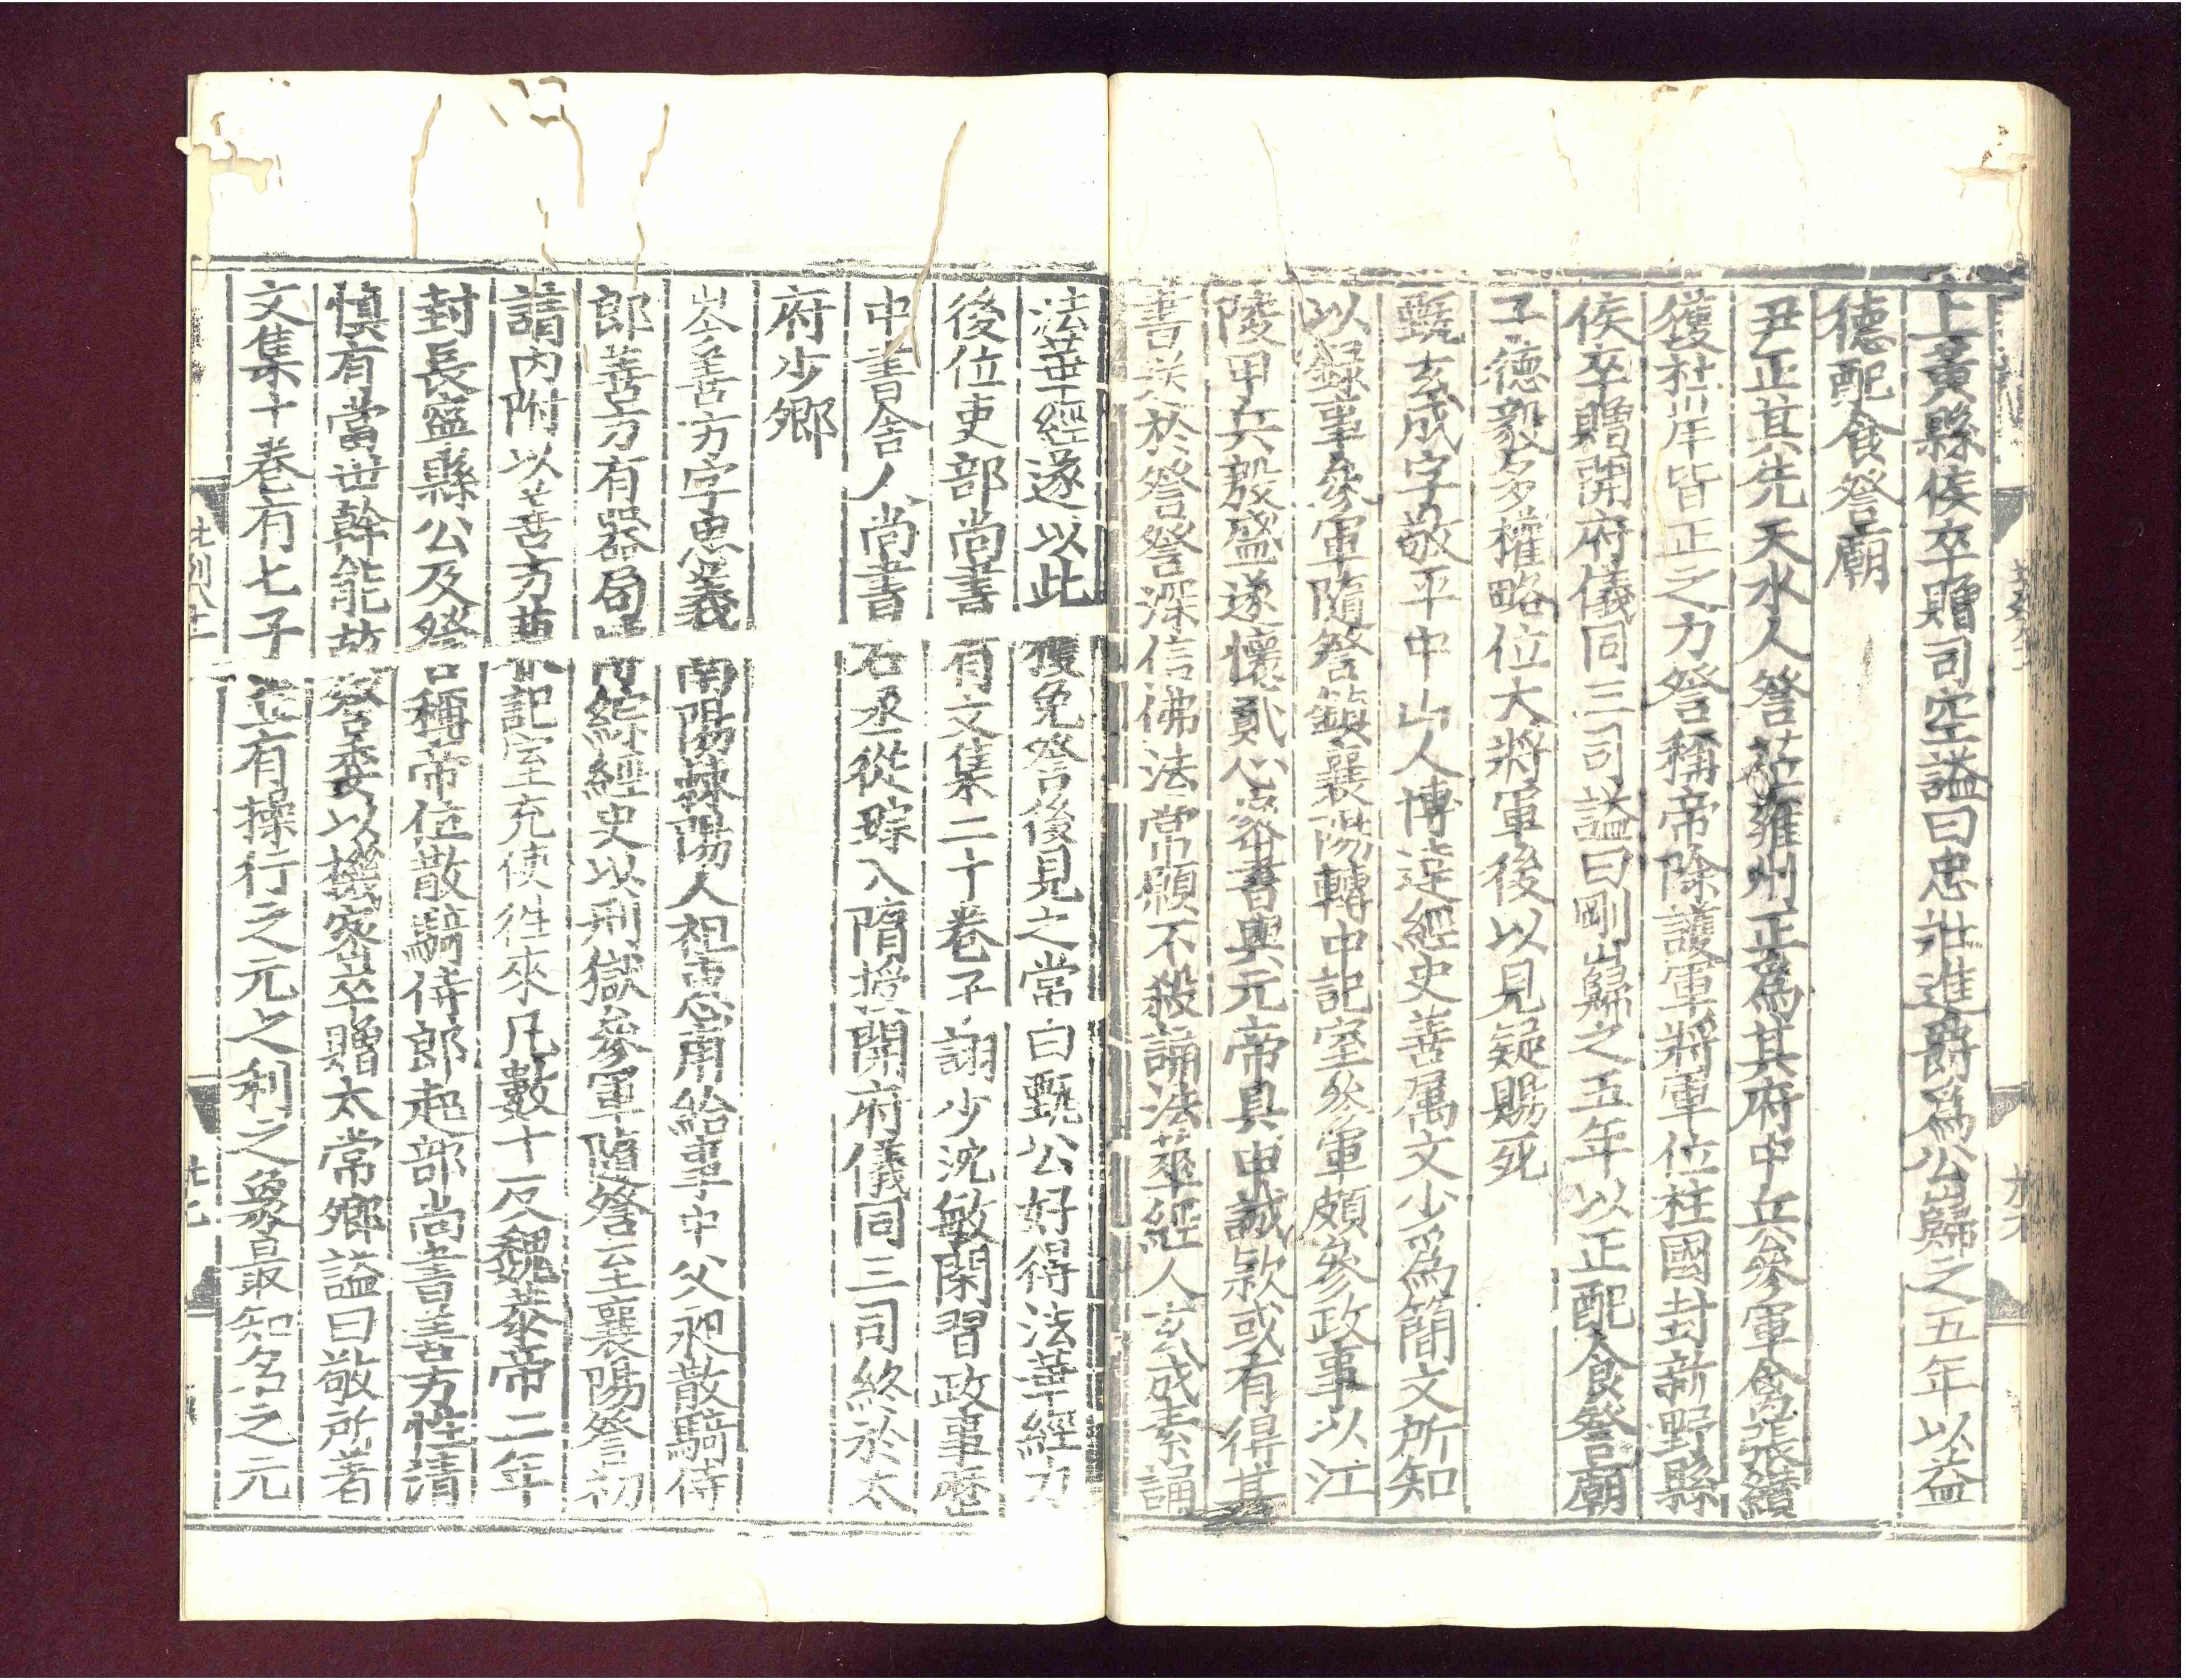 上黃縣侯卒贈司空謚曰忠壯進爵爲公巋之五年以益
德配食詧廟
尹正其先天水人詧莅雍州正爲其府中兵參軍禽張纘
獲杜岸皆正之力詧稱帝除護軍將軍位柱國封新野縣
侯卒贈開府儀同三司謚曰剛巋之五年以正配食詧廟
子德毅多權略位大將軍後以見疑賜死
甄玄成字敬平中山人博達經史善属文少爲簡文所知
以録事參軍隨詧鎮襄陽轉中記室參軍頗參政事以江
陵甲兵殷盛遂懷貳心密書與元帝具申誠款或有得其
書送於詧詧深信佛法常願不殺誦法華經人玄成素誦
法華經遂以此獲免詧後見之常曰甄公好得法華經力
後位吏部尚書有文集二十卷子詡少沈敏閑習政事歷
中書舍人尚書右丞從琮入隋授開府儀同三司終於太
府少鄉
岑善方字思義南陽棘陽人祖惠甫給事中父昶散騎侍
郎善方有器局 綜經史以刑獄參軍隨詧至襄陽詧初
請内附以善方兼記室充使徃來凡數十反魏恭帝二年
封長寧縣公及詧稱帝位散騎侍郎起部尚書善方性清
慎有當世幹能故詧委以機密卒贈太常鄉謚曰敬所著
文集十卷有七子並有操行之元之利之象最知名之元